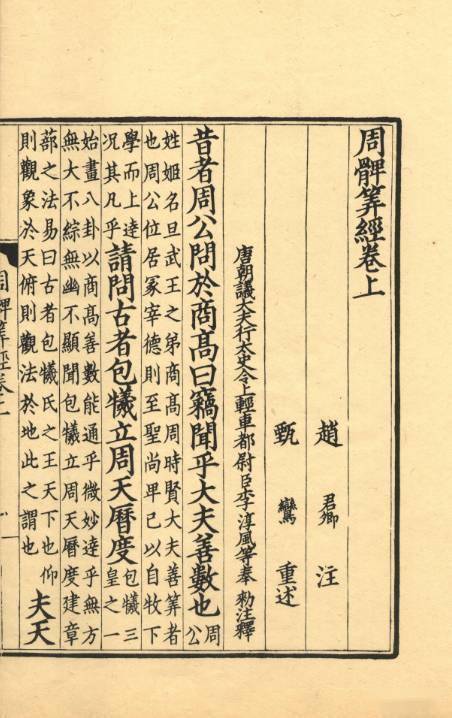 周髀筭經卷上
趙君卿注
甄鸞重述
唐朝議大夫行太史令上輕車都尉臣李淳風等奉 勑注釋
昔者周公問於商高曰竊聞乎大夫善數也周公
姓姬名旦武王之弟商高周時賢大夫善筭者
也周公位居冡宰德則至聖尚卑己以自牧下
學而上達況其凡乎請問古者包犧立周天曆度包犧三皇之一
始畫八卦以商高善數能通乎微妙達乎無方
無大不綜無幽不顯聞包犧立周天曆度建章
蔀之法易曰古者包犧氏之王天下也仰
則觀象於天俯則觀法於地此之謂也夫天